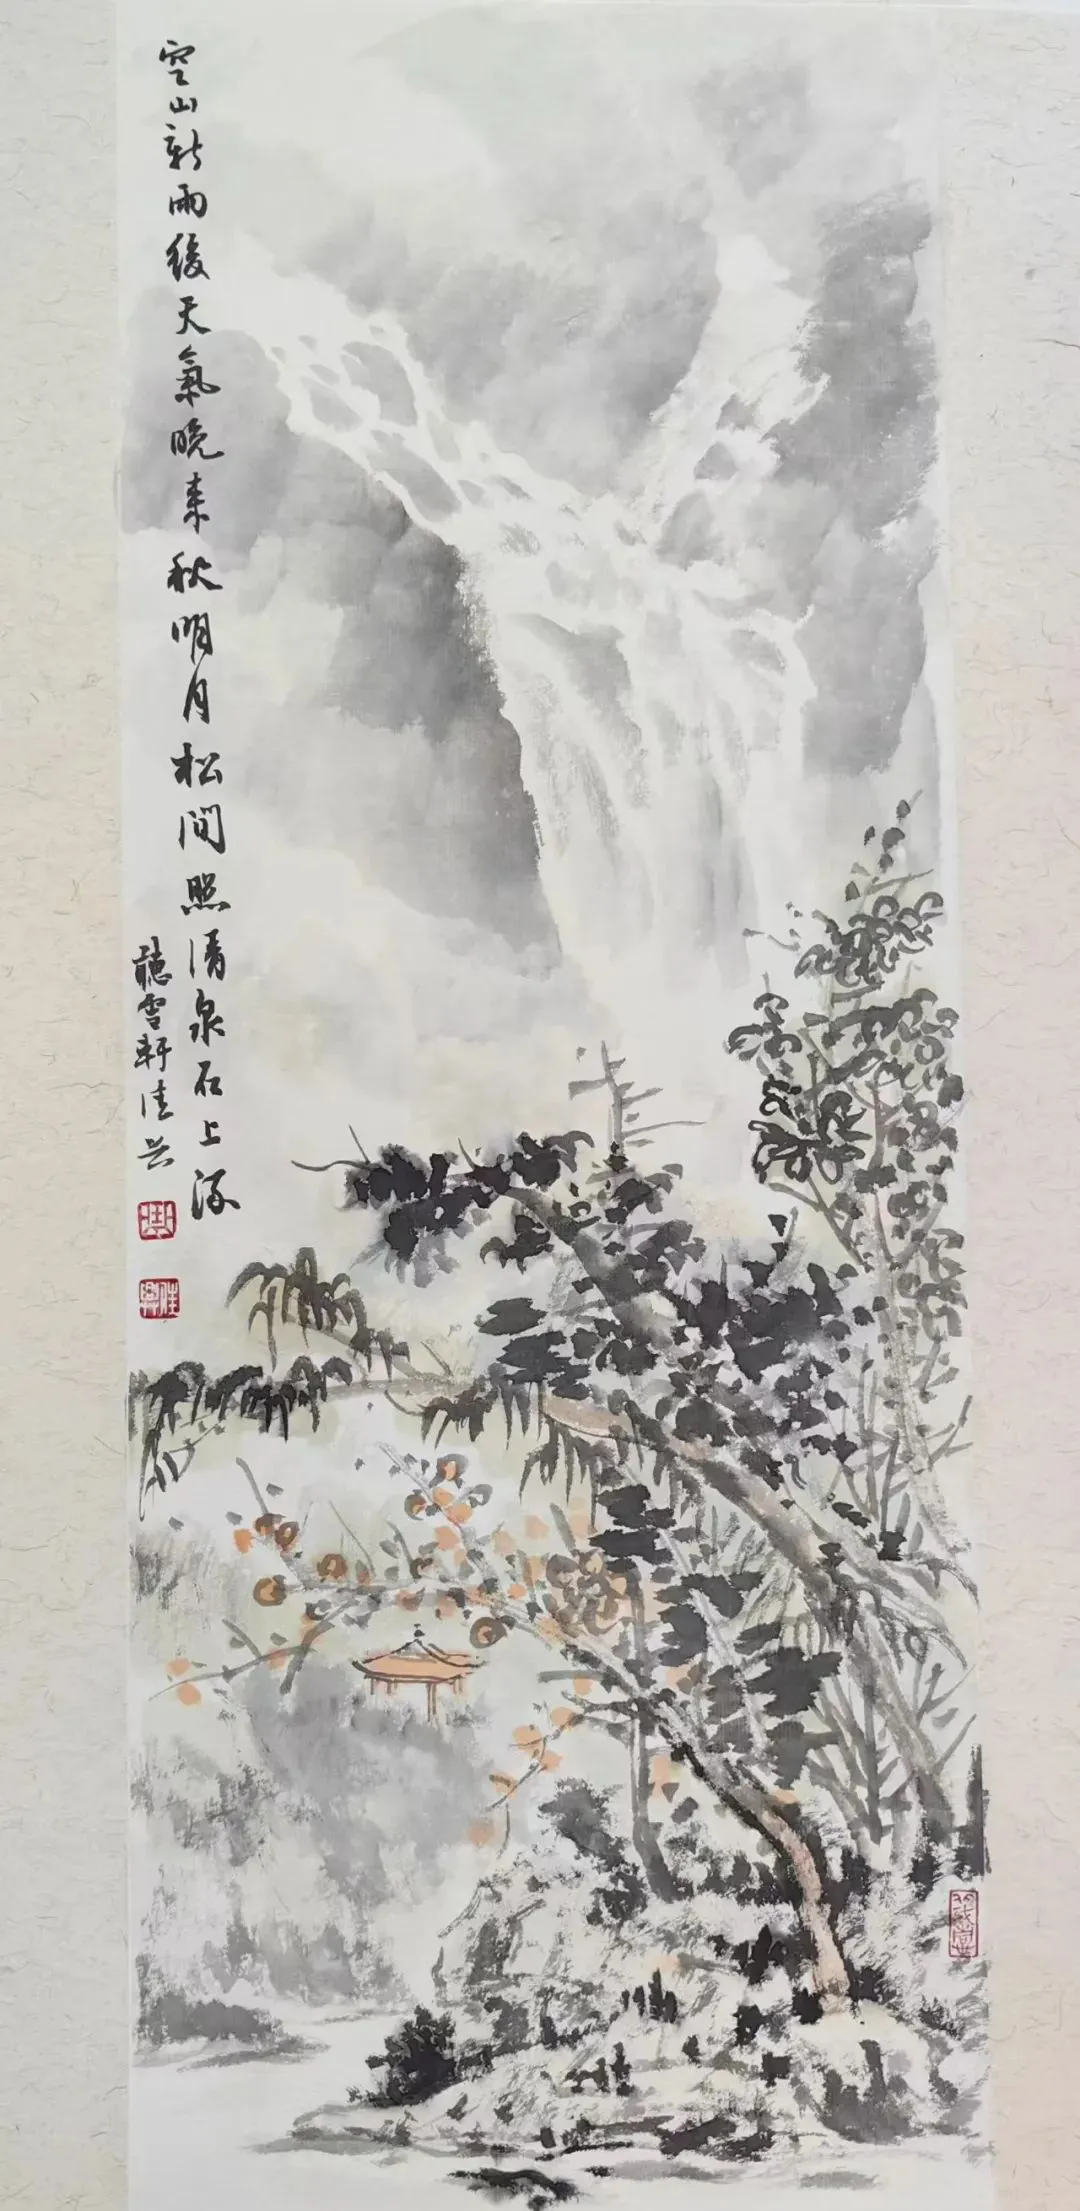 空山新雨後天氣晚来秋明月松间照清泉石上流
聽雪軒佳兴